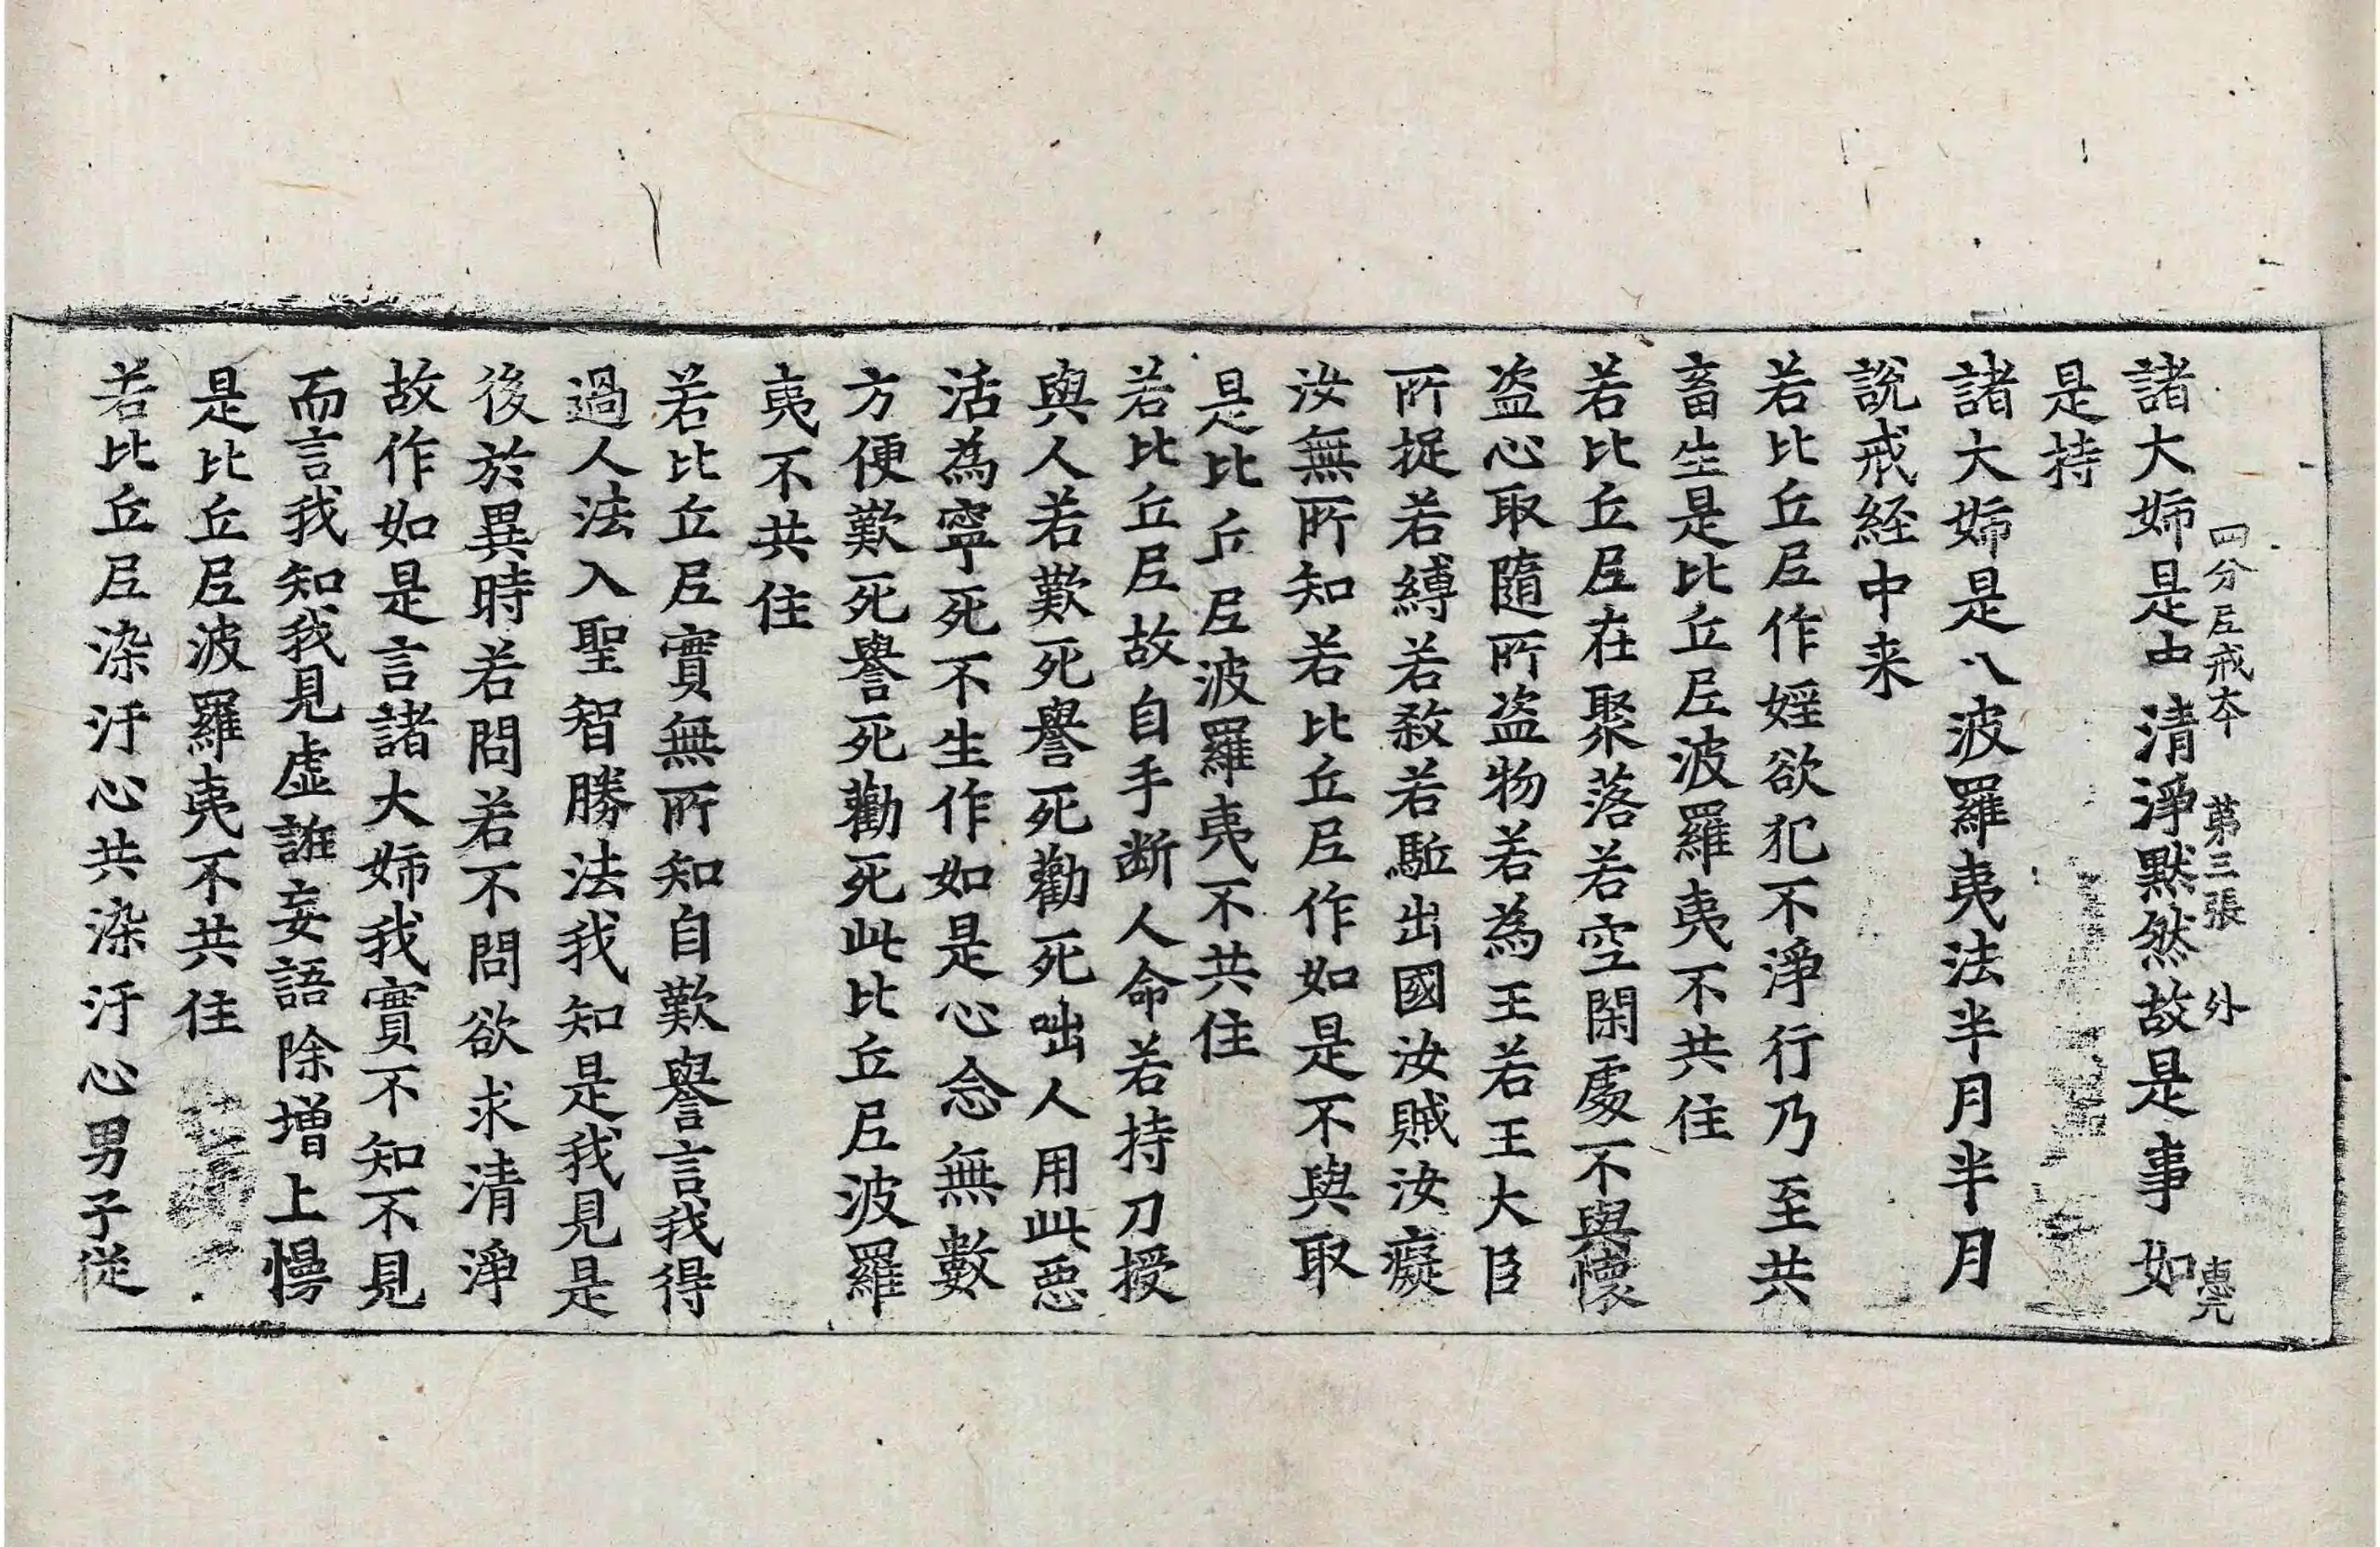 四分尼戒本 第三張 外 惠元
諸大姉是中清淨默然故是事如
是持
諸大姉是八波羅夷法半月半月
說戒経中来
若比丘尼作婬欲犯不淨行乃至共
畜生是比丘尼波羅夷不共住
若比丘尼在聚落若空閑處不與懷
盗心取隨所盗物若為王若王大臣
所捉若縛若敎若駈出國汝賊汝癡
汝無所知若比丘尼作如是不與取
是比丘尼波羅夷不共住
若比丘尼故自手断人命若持刀授
與人若歎死譽死勸死咄人用此惡
活為寧死不生作如是心念無數
方便歎死譽死勸死此比丘尼波羅
夷不共住
若比丘尼實無所知自歎譽言我得
過人法入聖智勝法我知是我見是
後於異時若問若不問欲求清淨
故作如是言諸大姉我實不知不見
而言我知我見虛誑妄語除增上慢
是比丘尼波羅夷不共住
若比丘尼染汙心共染汙心男子從